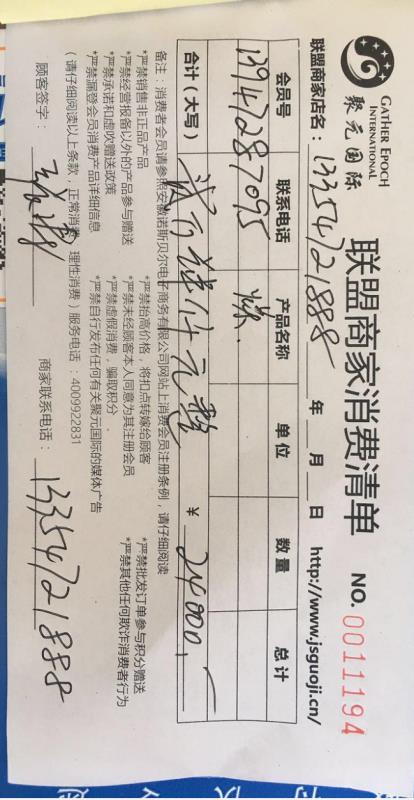 GATHER EPOCH
INTERNATIONAL
聚元国际
联盟商家消费清单 NO. 0011194
联盟商家店名：13354721888 年 月 日 http://www.jsguoji.cn/
会员号 联系电话 产品名称 单位 数量 总计
13947287095 煤
合计（大写） 元整 ￥ 24000.
备注：消费者会员请参照安徽诺斯贝尔电子商务有限公司网站上消费会员注册条例，请仔细阅读
*严禁销售非正品产品 *严禁抬高价格，将扣点转嫁给顾客 *严禁批发订单参与积分赠送
*严禁经营报备以外的产品参与赠送 *严禁未经顾客本人同意为其注册会员 *严禁其他任何欺诈消费者行为
*严禁承诺和虚吹赠送政策 *严禁虚假消费，骗取积分．
*严禁漏登会员消费产品详细信息 *严禁自行发布任何有关聚元国际的媒体广告
（请仔细阅读以上条款，正常消费，理性消费）服务电话：4009922831
顾客签字： 商家联系电话：13354721888